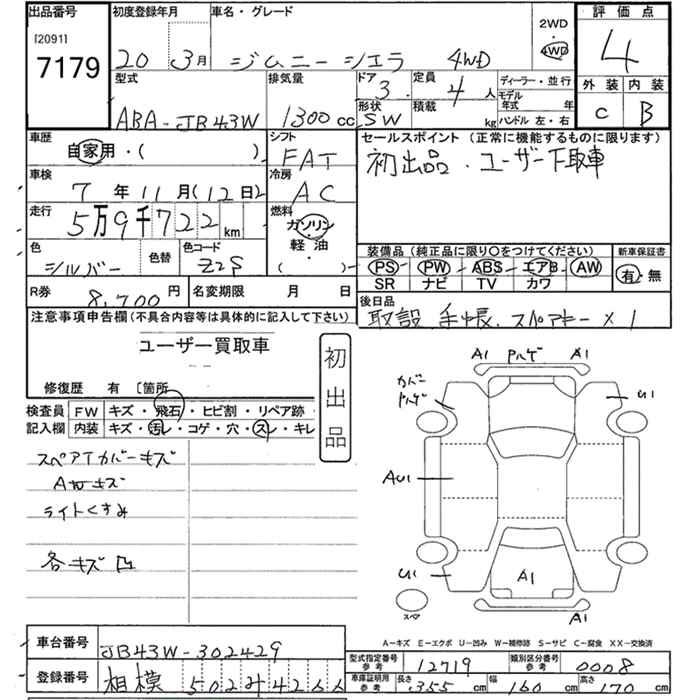 出品番号 初度登録年月 車名・グレード 2WD 評価点
[2091] 20 3月 ジムニーシエラ 4WD 4WD 4
7179
型式 排気量 ドア 定員 ディーラー・並行 外装 内装
ABA-JB43W 1300cc 3 4人 モデル年式 年 C B
形状 積載
SW kg ハンドル 左・右
車歴 シフト セールスポイント (正常に機能するものに限ります)
自家用・( ) FAT 初出品.ユーザー下取車
車検 冷房
7年11月(12日) AC
走行 燃料
5万9千722km ガソリン
軽油
( )
色 色替 色コード 装備品(純正品に限り○をつけてください) 新車保証書
シルバー Z2S PS・PW・ABS・エアB・AW 有・無
SR ナビ TV カワ
R券 8,700円 名変期限 月 日 後日品
取説 手帳.スペアキー×1
注意事項申告欄(不具合内容等は具体的に記入して下さい)
ユーザー買取車
初出品
修復歴 有 〔箇所
検査員記入欄 FW キズ・飛石・ヒビ割・リペア跡・
内装 キズ・汚レ・コゲ・穴・スレ・キレ
スペアTカバーキズ
AWキズ
ライトくすみ
各キズ凹
A1 ハゲ A1
カバーハゲ U1
AU1
U1 A1
スペア A1
A-キズ E-エクボ U-凹み W-補修跡 S-サビ C-腐食 XX-交換済
車台番号 JB43W-302429
型式指定番号 参考 12719 類別区分番号 参考 0008
登録番号 相模 502み4266
車庫証明用 参考 長さ 355cm 幅 160cm 高さ 170cm